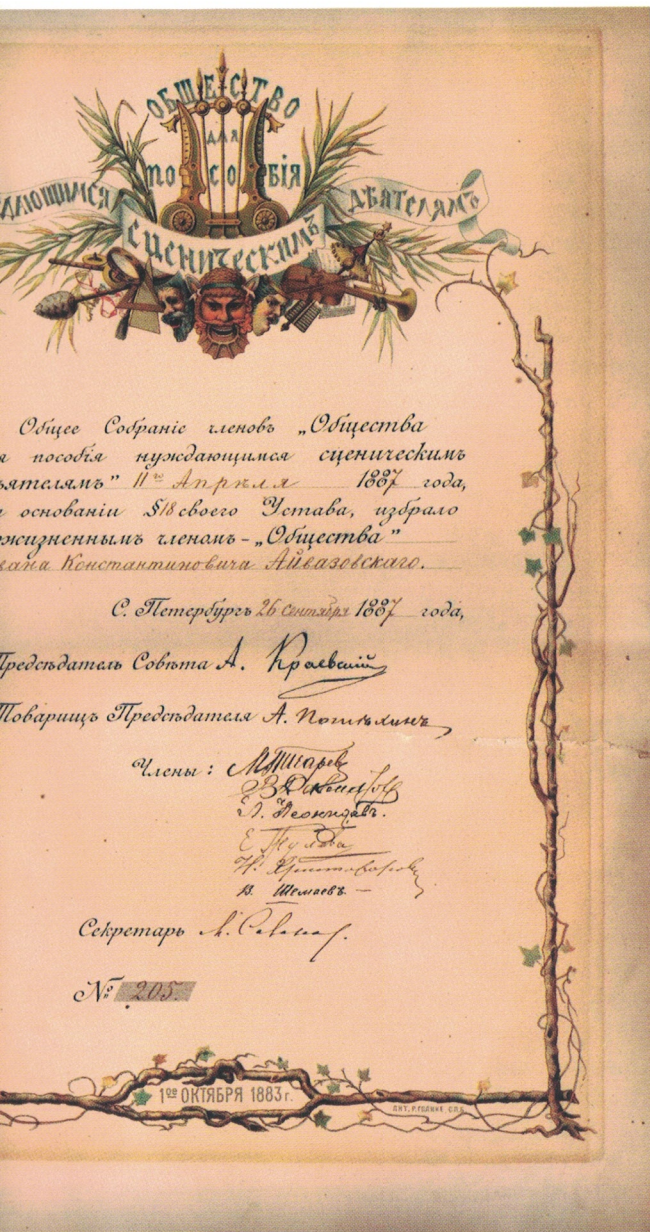 ОБЩЕСТВО
ДЛЯ
ПОСОБІЯ
ДАЮЩИМСЯ
СЦЕНИЧЕСКИМЪ
ДѢЯТЕЛЯМЪ
Общее Собраніе членовъ „Общества
я пособія нуждающимся сценическимъ
ѣятелямъ" 11го Апрѣля 1887 года,
а основаніи §18 своего Устава, избрало
ожизненнымъ членомъ - „Общества"
вана Константиновича Айвазовскаго.
С. Петербургъ 26 сентября 1887 года,
Предсѣдатель Совѣта А. Краевскій
Товарищъ Предсѣдателя А. Потѣхинъ
Члены:
В.
Л. Леонидовъ.
Е.
Н.
В. Шемаевъ.
Секретарь
№ 205.
1ое ОКТЯБРЯ 1883 г.
ЛИТ. Р. ГОЛИКЕ С.П.Б.